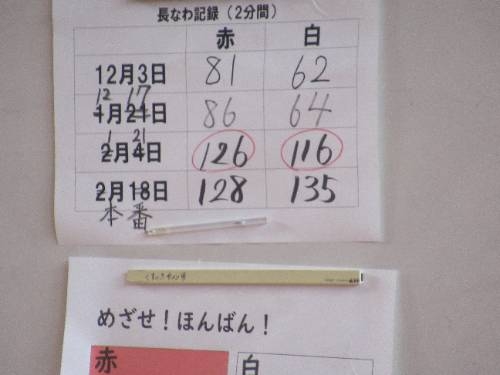 長なわ記録（2分間）
赤 白
12月3日 81 62
12 17
1月21日 86 64
1 21
2月4日 126 116
2月18日 128 135
本番
めざせ！ほんばん！
赤 白